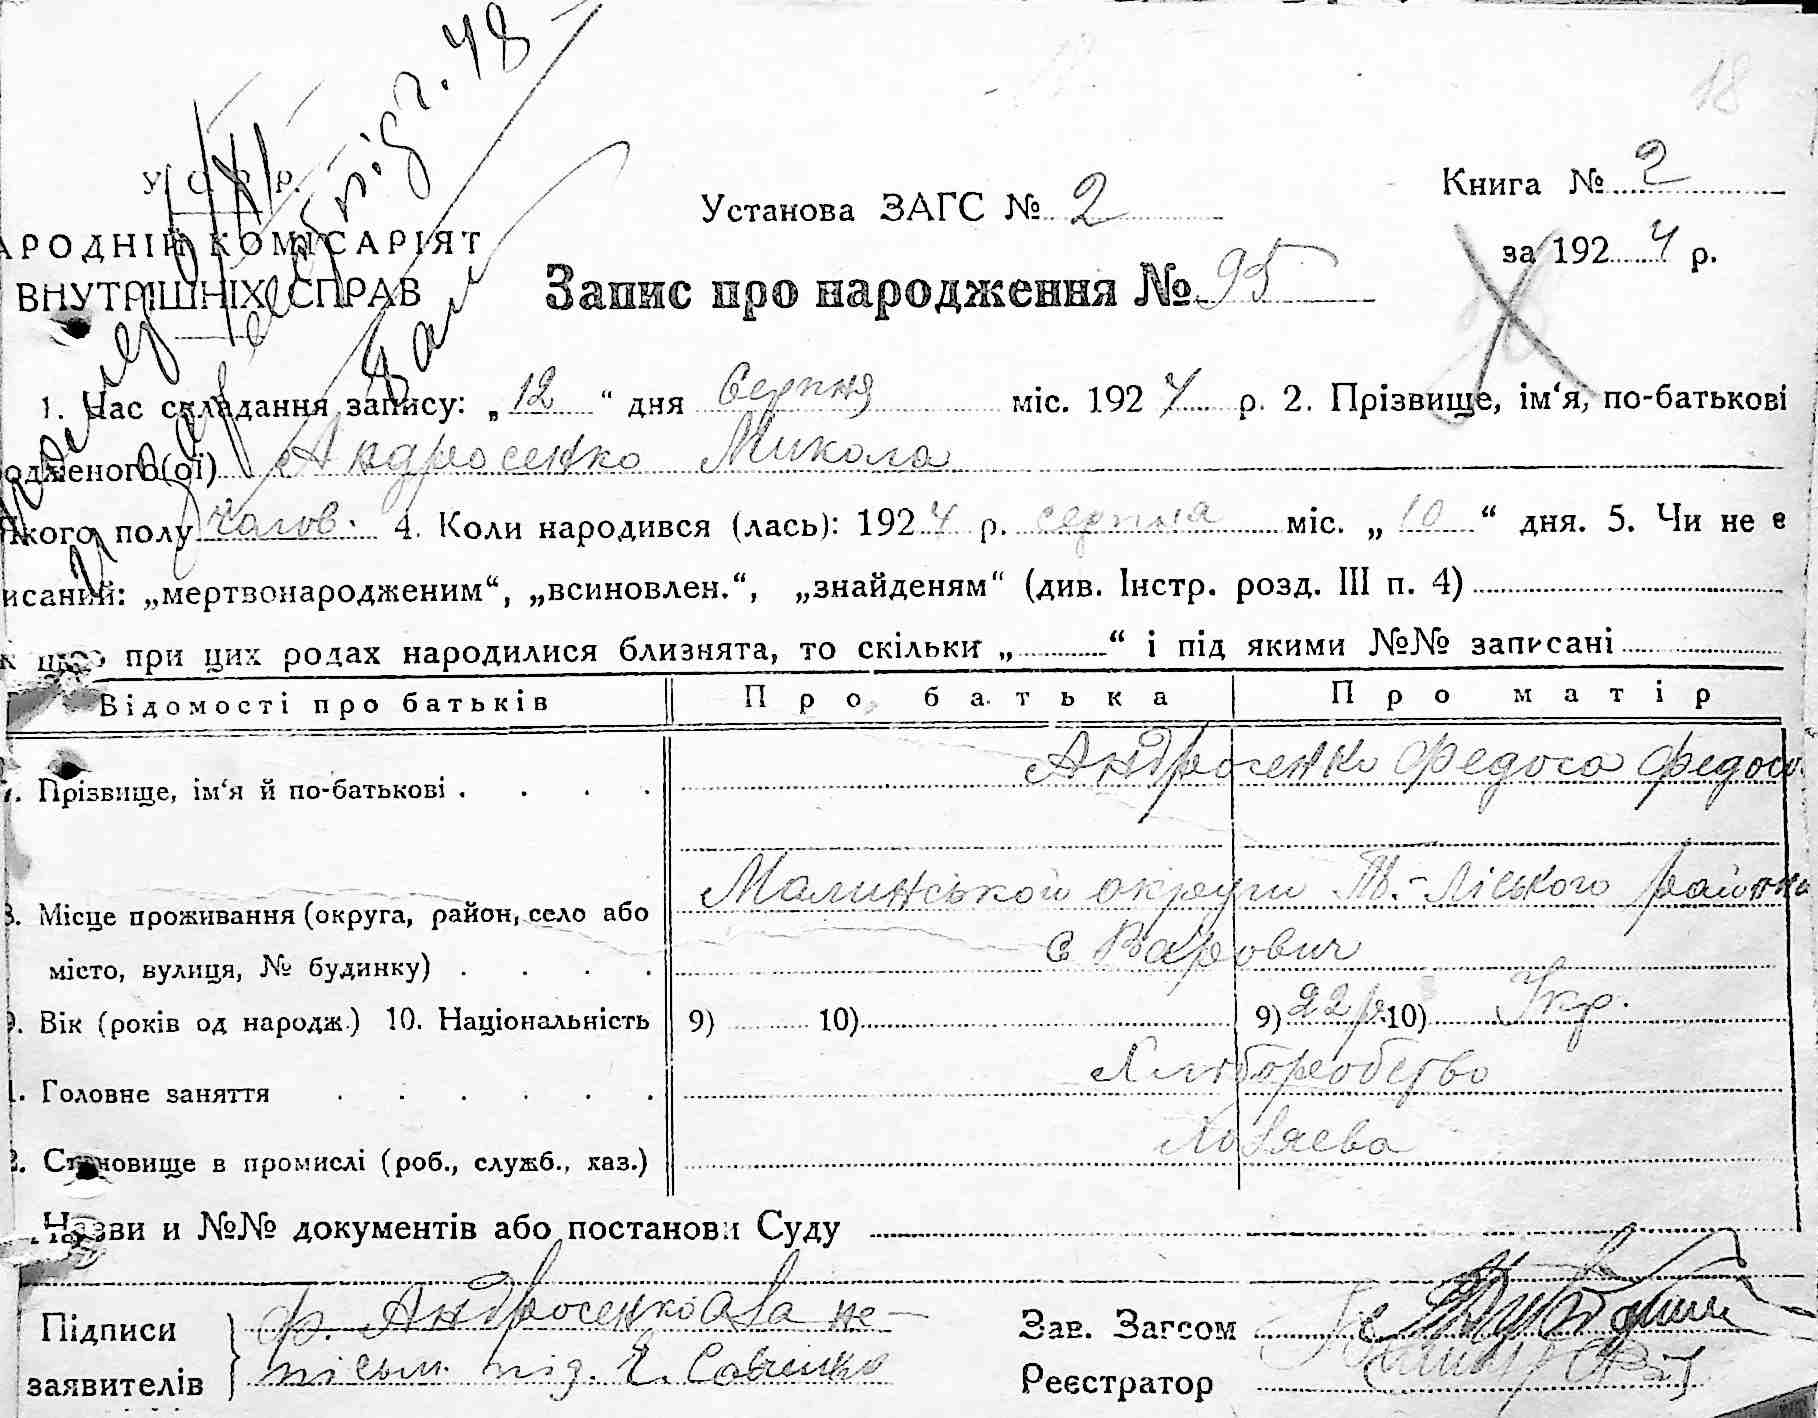 18
У. С. Р. Р.
Книга № 2
Установа ЗАГС № 2
АРОДНІЙ КОМІСАРІЯТ
за 1924 р.
ВНУТРІШНІХ СПРАВ
Запис про народження № 95
1. Час складання запису: „12“ дня Серпня міс. 1924 р. 2. Прізвище, ім‘я, по-батькові
одженого(ої) Андросенко Микола
Якого полу чолов. 4. Коли народився (лась): 1924 р. серпня міс. „10“ дня. 5. Чи не є
исаний: „мертвонародженим“, „всиновлен.“, „знайденям“ (див. Інстр. розд. III п. 4)
к що при цих родах народилися близнята, то скільки „ “ і під якими №№ записані
Відомості про батьків Про батька Про матір
7. Прізвище, ім‘я й по-батькові Андросенко Федоса Федос
8. Місце проживання (округа, район, село або Малинської округи Тв.-Ліського района
місто, вулиця, № будинку) с Варович
9. Вік (років од народж.) 10. Національність 9) 10) 9) 22 р. 10) Укр.
1. Головне заняття Хліборобство
2. Становище в промислі (роб., служб., хаз.) Хозяєва
Назви и №№ документів або постанови Суду
Підписи Ф. Андросенкоава не-
заявителів письм. під. Є. Савченко
Зав. Загсом
Реєстратор